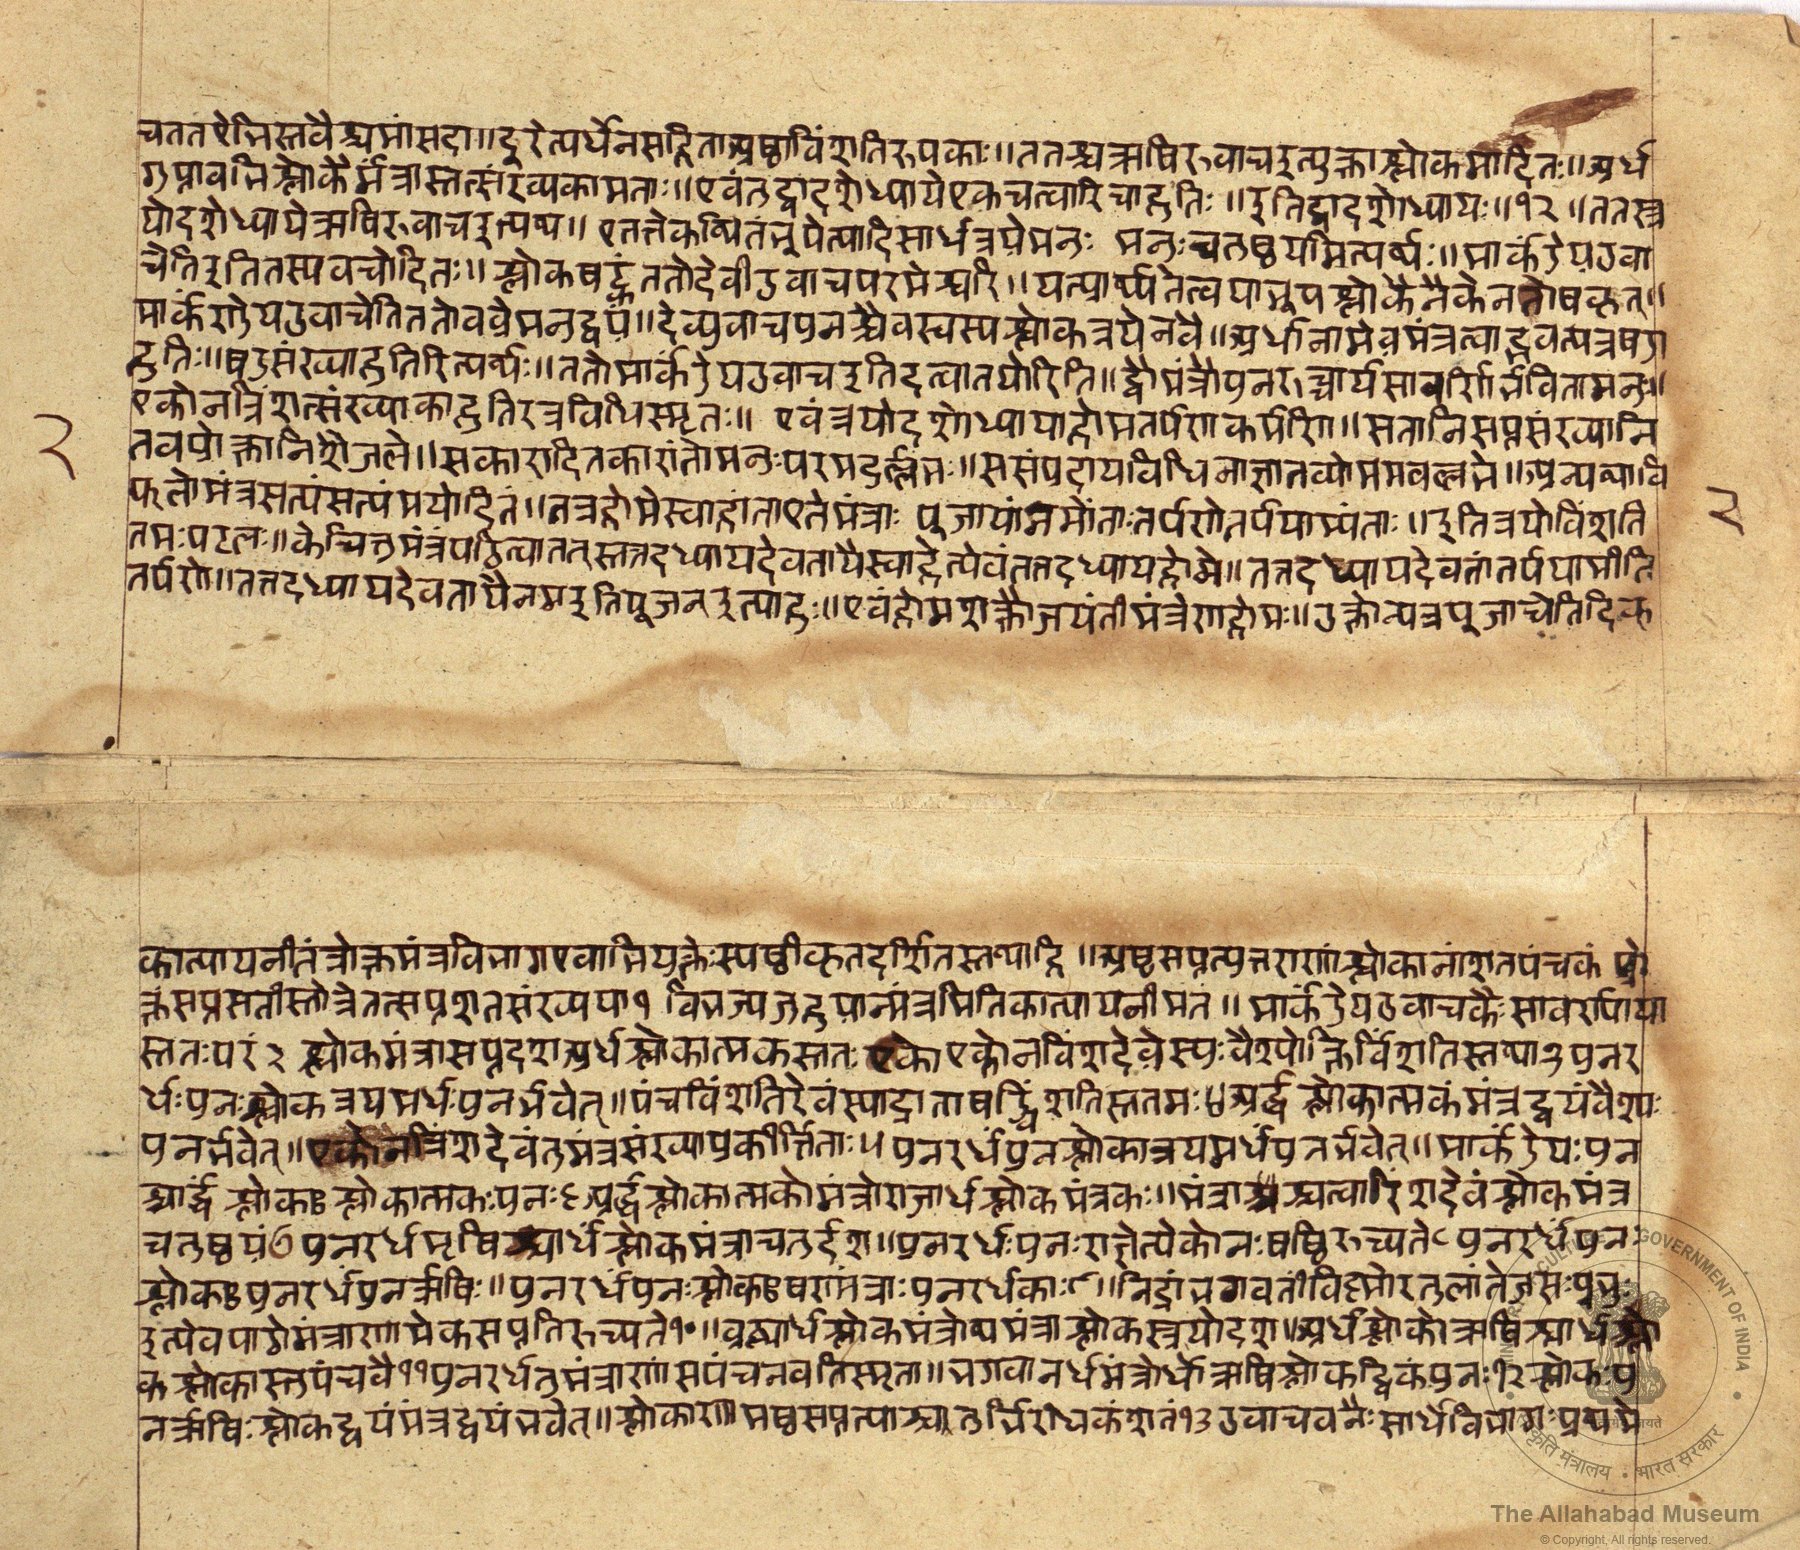 चततऐभिस्तवैश्चमांसदा॥दुरेत्यर्धेनसहिताअष्टाविंशतिरुपकाः॥ततश्चऋषिरुवाचइत्युक्त्वाश्लोकमादितः॥अर्ध
गप्तावभिश्लोकैर्मंत्रास्तत्संख्यकामताः॥एवंतुद्वादशेध्यायेएकचत्वारिचाहुतिः॥इतिद्वादशोध्यायः॥१२॥ततस्त्र
योदशेध्यायेऋषिरुवाचइत्यथ॥एतत्तेकथितंभूपेत्यादिसार्धत्रयेमनुः मनुःचतुष्टयमित्यर्थः॥मार्कंडेयउवा
चेतिइतितस्यवचोदितः॥श्लोकषट्कंततोदेवीउवाचपरमेश्वरि॥यत्प्रार्थ्यतेत्वयाभूपश्लोकेनैकेनतोषकृत्॥
मार्कंणेयउवाचेतिततोवव्रेमनुद्वयं॥देव्युवाचपुनश्चैवस्वस्पश्लोकत्रयेनवै॥अर्धानामेवमंत्रत्वाद्भवत्यत्रषडा
हुतिः॥षडसंख्याहुतिरित्यर्थः॥ततोमार्कंडेयउवाचइतिदत्वातयोरिति॥द्वौमंत्रौपुनरुच्चार्यसावर्णिर्भवितामनुः॥
एकोनत्रिंशत्संख्याकाहुतिरत्रविधिस्मृतः॥ एवंत्रयोदशोध्यायाहोमतर्पणकर्मणि॥सतानिसप्तसंख्यानि
२
तवप्रोक्तानिशैजले॥सकारादितकारांतोमनुःपरमदुर्ल्लभः॥ससंप्रदायविधिनाज्ञातव्योममवल्लभे॥अन्यथावि
फलोमंत्रसत्यंसत्यंमयोदितं॥तत्रहोमेस्वाहांताएतेमंत्राः पूजायांनमोंताःतर्पणेतर्पयाम्यंताः॥इतित्रयोविंशति
२
तमःपटलः॥केचित्तुमंत्रंपठित्वाततस्तत्तदध्यायदेवतायैस्वाहेत्येवंतत्तदध्यायहोमे॥तत्तदध्यायदेवतांतर्पयामीति
तर्पणे॥तत्तदध्यायदेवतायैनमइतिपूजनइत्याहुः॥एवंहोमशक्तौजयंतीमंत्रेणहोमः॥उक्तोन्यत्रपूजाचेतिदिक्
कात्यायनीतंत्रोक्तमंत्रविभागएवाभियुक्तैःस्पष्टीकृतदर्शितस्तथाहि॥अष्टसप्तत्युत्तराणांश्लोकानांशतपंचकं प्रो
क्तंसप्तसतीस्तोत्रेतत्सप्तशतसंख्यया१ विभज्यजुहुयान्मंत्रमितिकात्यायनीमतं॥ मार्कंडेयउवाचकैःसावर्ण्याया
स्ततःपरं२ श्लोकमंत्रासप्तदशअर्धश्लोकात्मकस्ततः एको एकोनविंशदेवेस्युःवैश्योक्तिर्विंशतिस्तथा३पुनर
र्धःपुनःश्लोकत्रयमर्धःपुनर्भवेत्॥पंचविंशतिरेवंस्याद्राताषड्विंशतिस्ततमः४अर्द्धश्लोकात्मकंमंत्रद्वयंवैश्यः
पुनर्भवेत्॥एकोनत्रिंशदेवंतुमंत्रसंख्याप्रकीर्त्तिताः५पुनरर्धंपुनश्लोकात्रयमर्धंपुनर्भवेत्॥मार्कंडेयःपुन
श्चार्द्धंश्लोकःश्लोकात्मकःपुनः६अर्द्धश्लोकात्मकोमंत्रोराजार्धश्लोकमंत्रकः॥मंत्राश्चत्वारिंशदेवंश्लोकमंत्र
चतुष्टयं७पुनरर्धमृषिश्चार्धंश्लोकमंत्राचतुर्दश॥पुनरर्धःपुनःराज्ञेत्येकोनःषष्ठिरुच्यते८पुनरर्धंपुनः
श्लोकःपुनरर्धंपुनर्ऋषिः॥पुनरर्धंपुनःश्लोकःषण्मंत्राःपुनरर्धकाः९॥निद्रांभगवतींविष्णोरतुलांतेजसःप्रभुः
इत्येवपाठोमंत्राणामेकसप्ततिरुच्यते१०॥ब्रह्मार्धश्लोकमंत्रोथमंत्राश्लोकस्त्रयोदश॥अर्धश्लोकोऋषिश्चार्धश्लो
कश्लोकास्तुपंचवै११पुनरर्धंतुमंत्राणांसपंचनवतिस्मृता॥भगवानर्धमंत्रोर्धोऋषिश्लोकद्विकंपुनः१२श्लोकःपु
नर्ऋषिःश्लोकद्वयंमंत्रद्वयंभवेत्॥श्लोकाणामष्टसप्तत्याश्चातुर्भिरधिकंशतं१३उवाचवनैःसार्धंविभागःप्रथमे
The Allahabad Museum
© Copyright, All rights reserved.